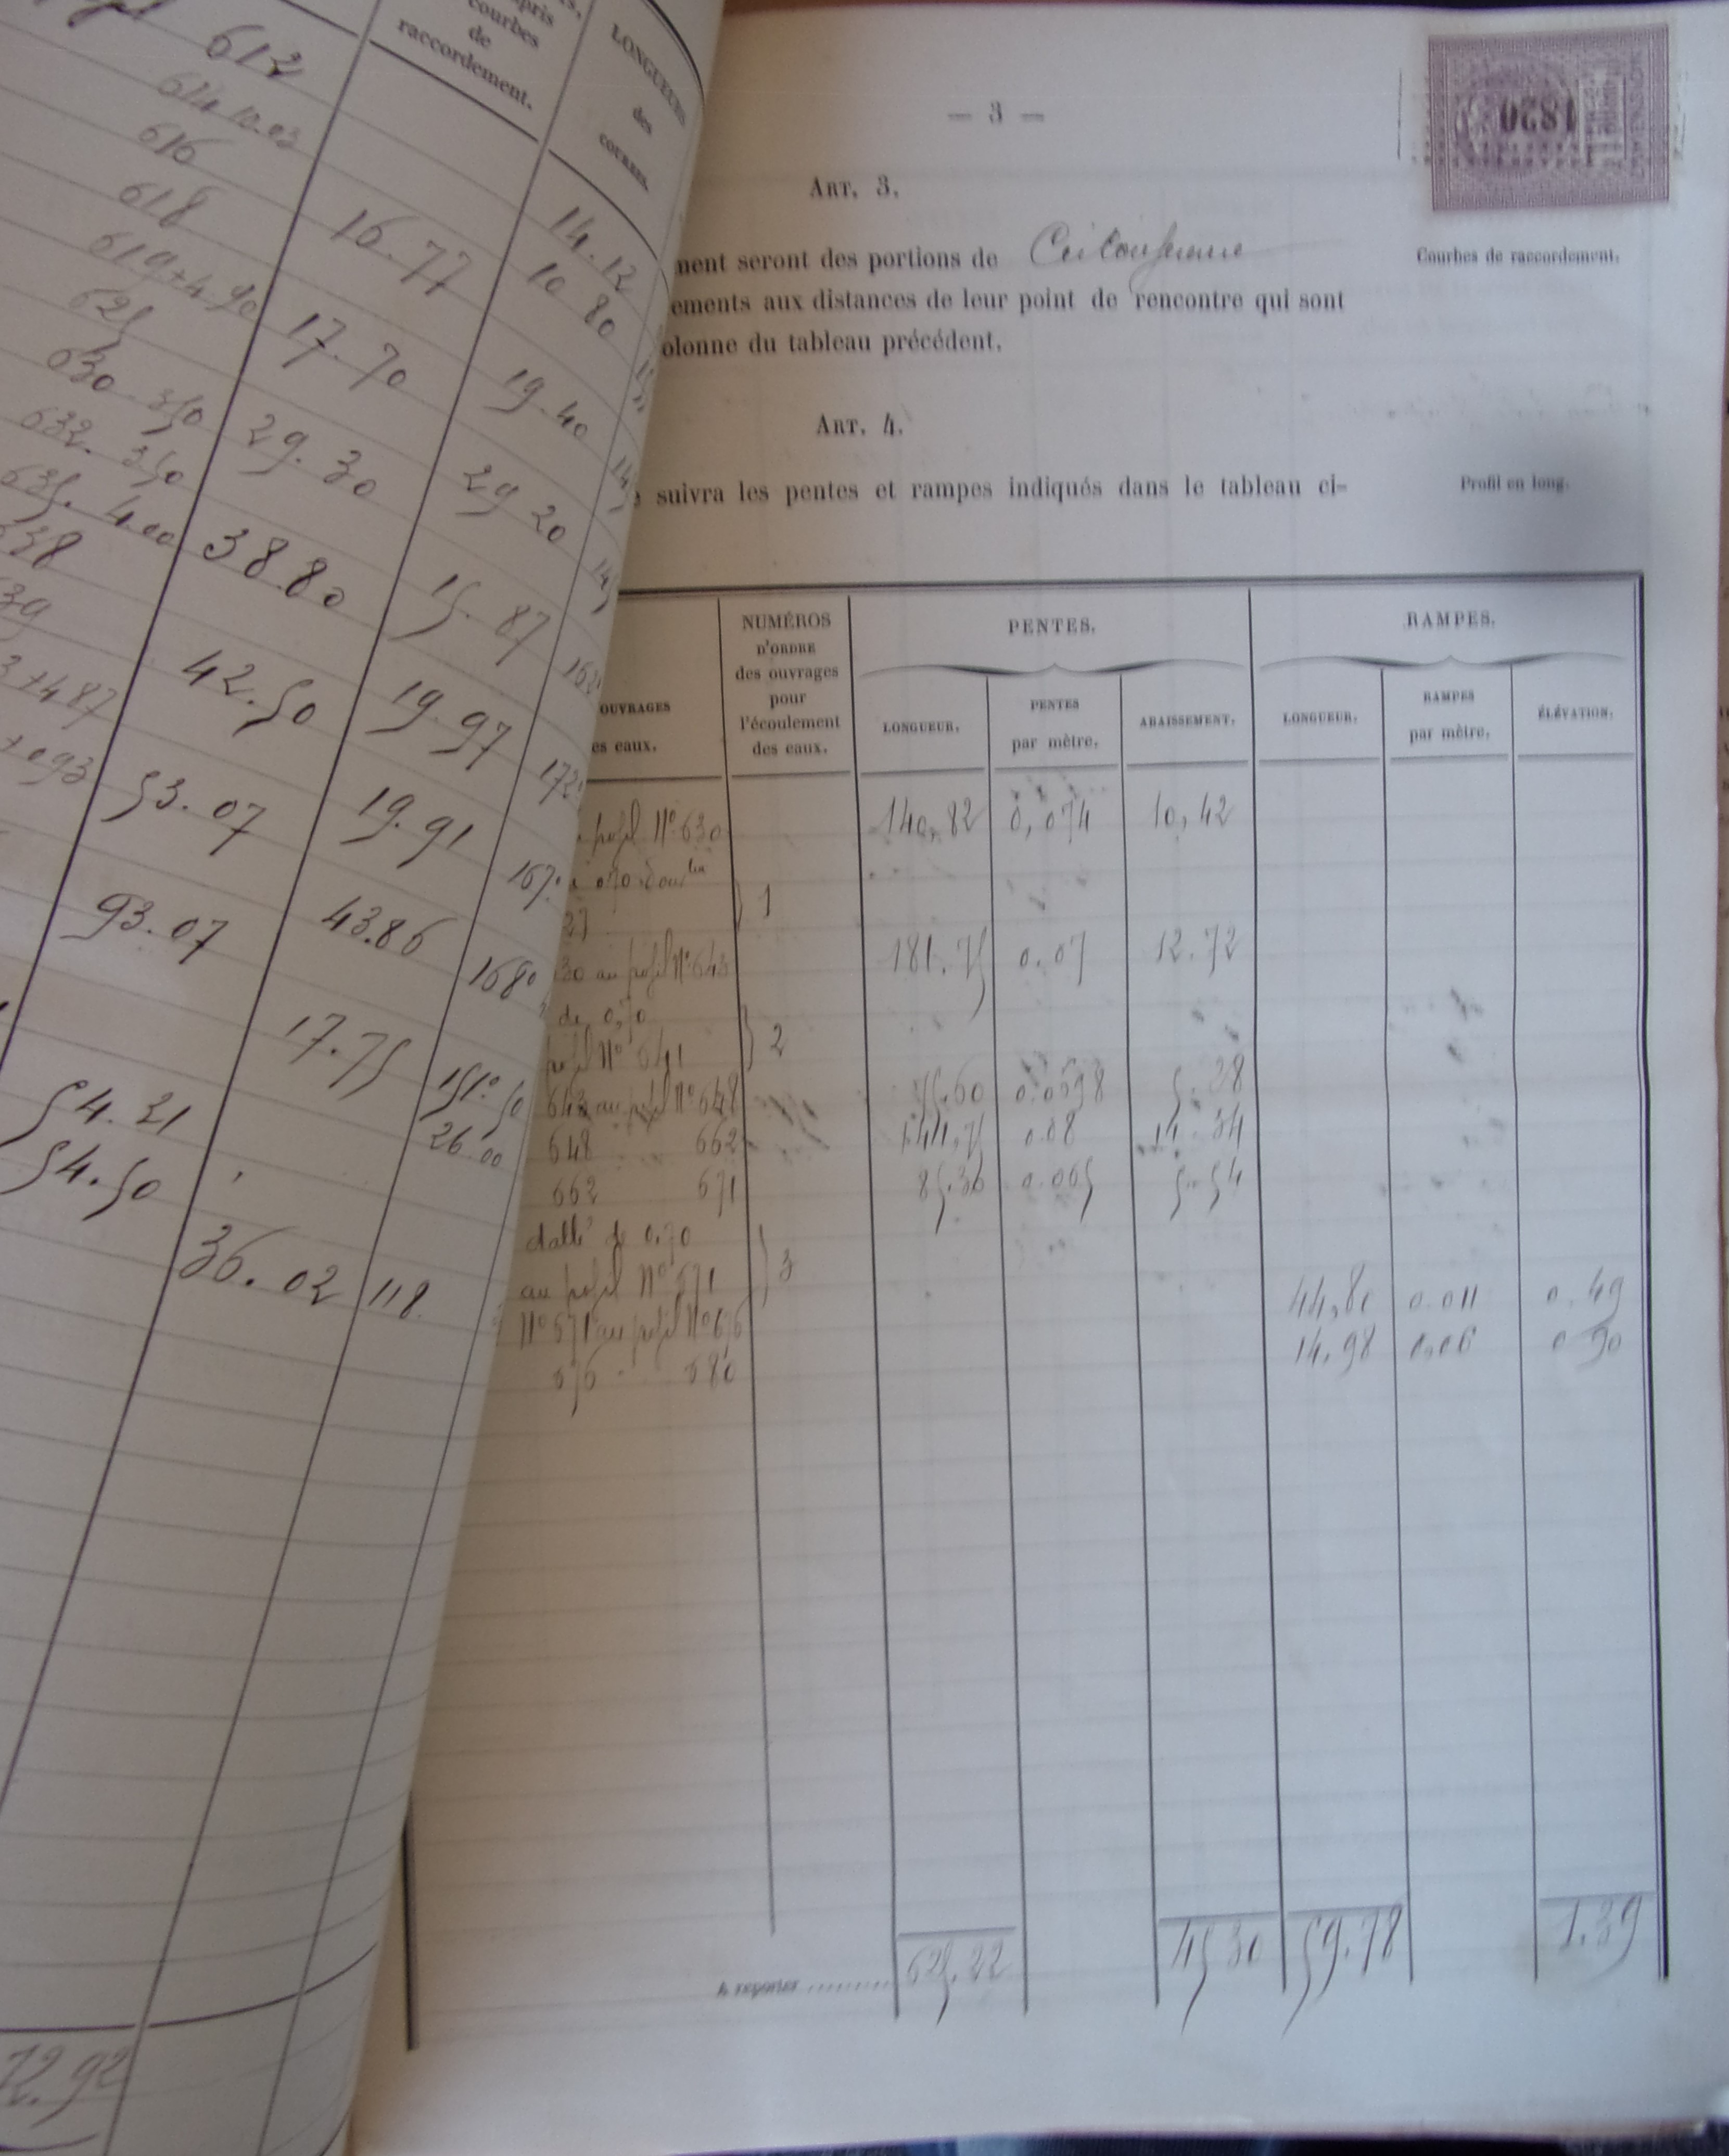 612
614 10.03
616
618
619+4.90
625
630 . 350
632. 350
635. 400
38
39
3+487
+093
courbes
de
raccordement.
16.77
17.70
29.30
38.80
42.50
53.07
93.07
54.21
54.50
72.92
LONGUEURS
des
COURBES.
14.12
10 80
19.40
29 20
15.87
19.97
19.91
43.86
17.75
36.02
162
172
167°
168°
151° 50
26.00
118.
— 3 —
1820
DIMENSION
Art. 3.
ment seront des portions de Circonférence
Courbes de raccordement.
ements aux distances de leur point de rencontre qui sont
olonne du tableau précédent.
Art. 4.
suivra les pentes et rampes indiqués dans le tableau ci-
Profil en long.
OUVRAGES
es eaux.
NUMÉROS
D'ORDRE
des ouvrages
pour
l'écoulement
des eaux.
PENTES.
RAMPES.
LONGUEUR.
PENTES
par mètre.
ABAISSEMENT.
LONGUEUR.
RAMPES
par mètre.
ÉLÉVATION.
profil N° 630 140,82 0,074 10,42
1
30 au profil N° 643 181.75 0.07 12.72
de 0,70
profil N° 641 2
643 au profil N° 648 75.60 0.0698 5.28
648 662 141,75 0.08 11.34
662 671 85.30 0.065 5.54
dallé de 0.70
au profil N° 671 3
N° 671 au profil N° 676 44,80 0.011 0.49
676 680 14.98 0.06 0 90
A reporter .......... 625.22 45 30 59.78 1.39